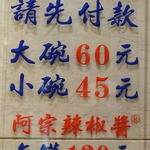 請先付款
大碗60元
小碗45元
阿宗辣椒醬